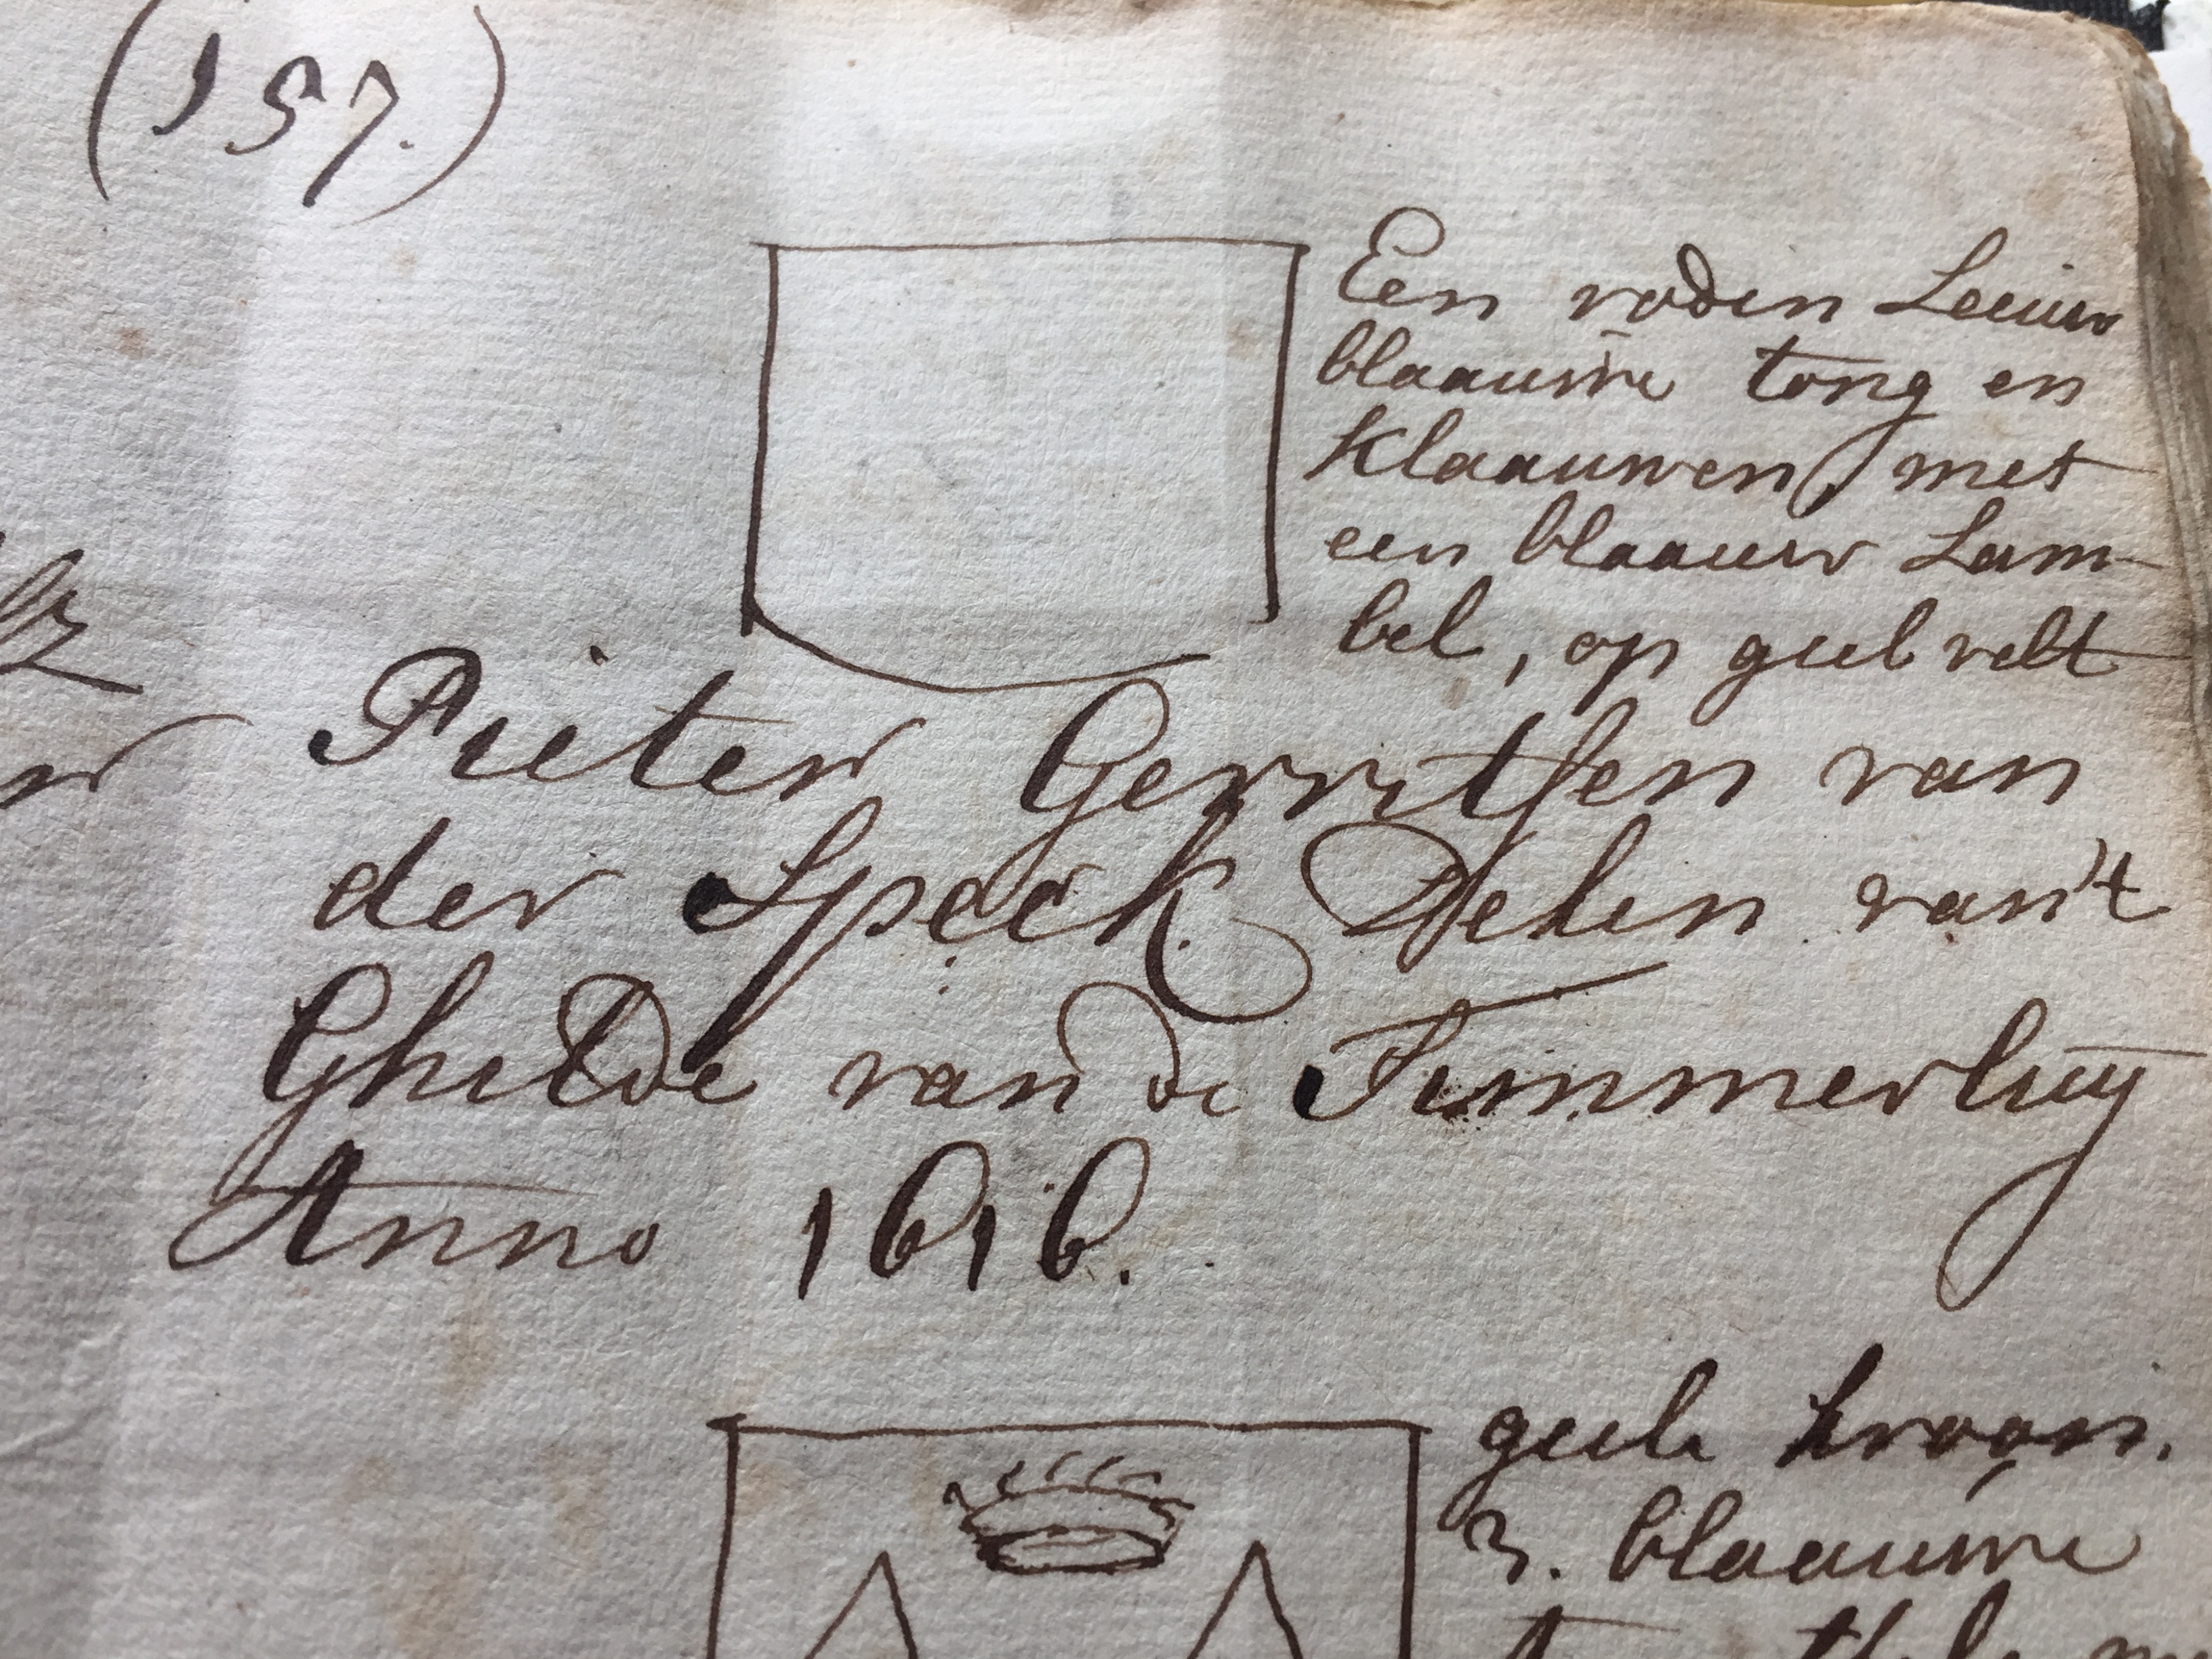 (157.)
Een roden Leeuw
blaauwe tong en
Klaauwen, met
een blaauw Lam-
bel, op geel velt
Pieter Gerritsen van
der Speck. Deken van't
Ghilde van de Timmerluij
Anno 1616.
geele kroon.
3. blaauwe